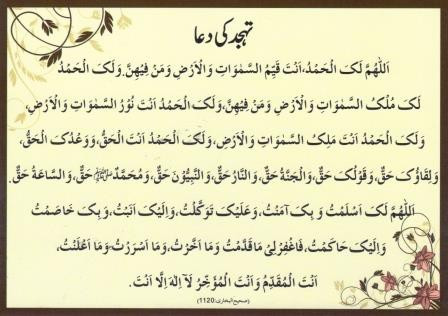 تہجد کی دعا
اَللّٰهُمَّ لَکَ الْحَمْدُ،اَنْتَ قَیِّمُ السَّمٰوَاتِ وَالْاَرْضِ وَمَنْ فِیْهِنَّ.وَلَکَ الْحَمْدُ
لَکَ مُلْکُ السَّمٰوَاتِ وَالْاَرْضِ وَمَنْ فِیْهِنَّ،وَلَکَ الْحَمْدُ اَنْتَ نُوْرُ السَّمٰوَاتِ وَالْاَرْضِ،
وَلَکَ الْحَمْدُ اَنْتَ مَلِکُ السَّمٰوَاتِ وَالْاَرْضِ،وَلَکَ الْحَمْدُ اَنْتَ الْحَقُّ،وَوَعْدُکَ الْحَقُّ،
وَلِقَاؤُکَ حَقٌّ،وَقَوْلُکَ حَقٌّ،وَالْجَنَّةُ حَقٌّ،وَالنَّارُ حَقٌّ،وَالنَّبِیُّوْنَ حَقٌّ،وَمُحَمَّدٌ ﷺ حَقٌّ،وَالسَّاعَةُ حَقٌّ.
اَللّٰهُمَّ لَکَ اَسْلَمْتُ وَ بِکَ آمَنْتُ،وَعَلَیْکَ تَوَکَّلْتُ،وَاِلَیْکَ اَنَبْتُ،وَبِکَ خَاصَمْتُ
وَاِلَیْکَ حَاکَمْتُ،فَاغْفِرْلِیْ مَا قَدَّمْتُ وَمَا اَخَّرْتُ،وَمَا اَسْرَرْتُ،وَمَا اَعْلَنْتُ،
اَنْتَ الْمُقَدِّمُ وَاَنْتَ الْمُؤَخِّرُ لَآ اِلٰهَ اِلَّا اَنْتَ.
(صحیح البخاری:1120)